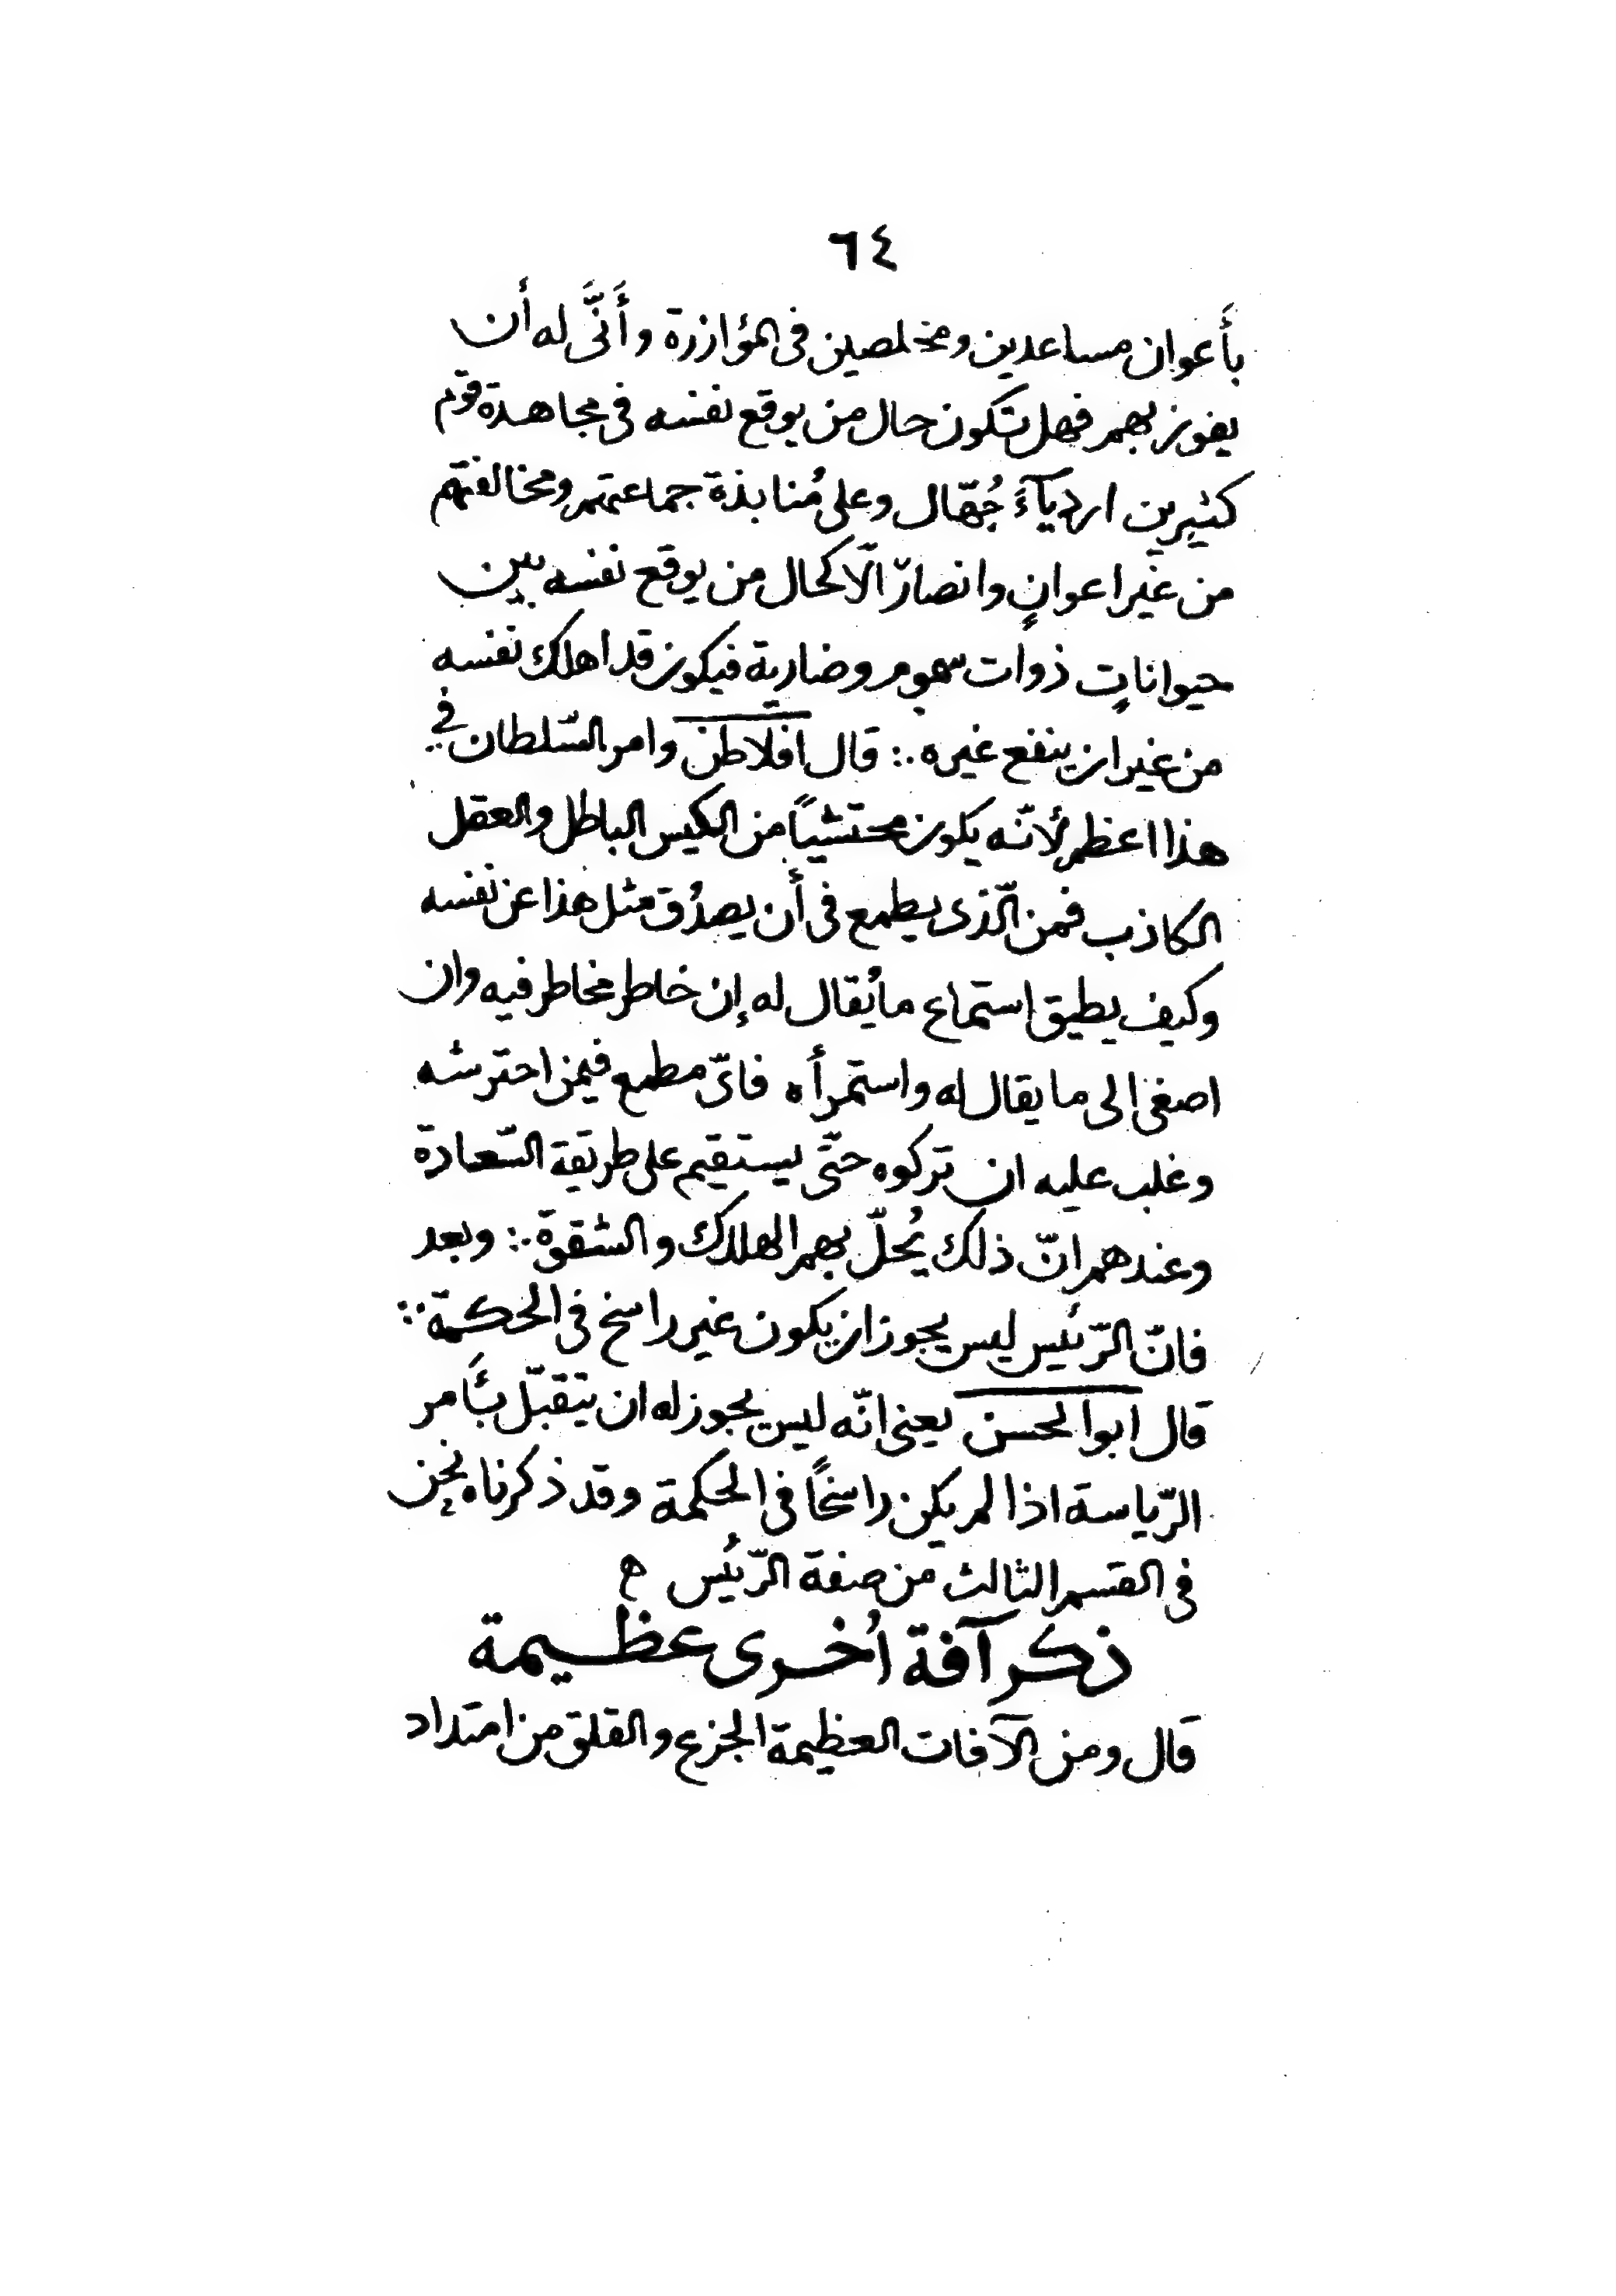 ٦٤
بأَعوان مساعدين ومخلصين فى المؤازرة وأَنَّى له أن
يفوز بهم فهل تكون حال من يوقع نفسه فى مجاهدة قوم
كثيرين اردياءَ جُهّال وعلى مُنابذة جماعتهم ومخالفتهم
من غير اعوانٍ وانصارّ الّا كحال من يوقع نفسه بين
حيواناتٍ ذوات سموم وضارية فيكون قد اهلك نفسه
من غير ان ينفع غيره ∴ قال افلاطن وامر السّلطان في
هذا اعظم لأنّه يكون محتشياً من الكيس الباطل والعقل
الكاذب فمن الّذى يطمع فى أن يصدُق مثل هذا عن نفسه
وكيف يطيق استماع ما يُقال له إن خاطر مخاطر فيه وان
اصغى الى ما يقال له واستمرأه فاىّ مطمع فيمن احترشه
وغلب عليه ان تركوه حتّى يستقيم على طريقة السّعادة
وعندهم انّ ذلك يُحلّ بهم الهلاك والشقوة ∴ وبعد
فانّ الرّئيس ليس يجوز ان يكون غير راسخ فى الحكمة ∴
قال ابو الحسن يعنى انّه ليس يجوز له ان يتقبّل بأَمر
الرّياسة اذا لم يكن راسخًا فى الحكمة وقد ذكرناه نحن
فى القسم الثالث من صفة الرّئيس ه
ذكر آفة اُخرى عظيمة
قال ومن الآفات العظيمة الجزع والقلق من امتداد